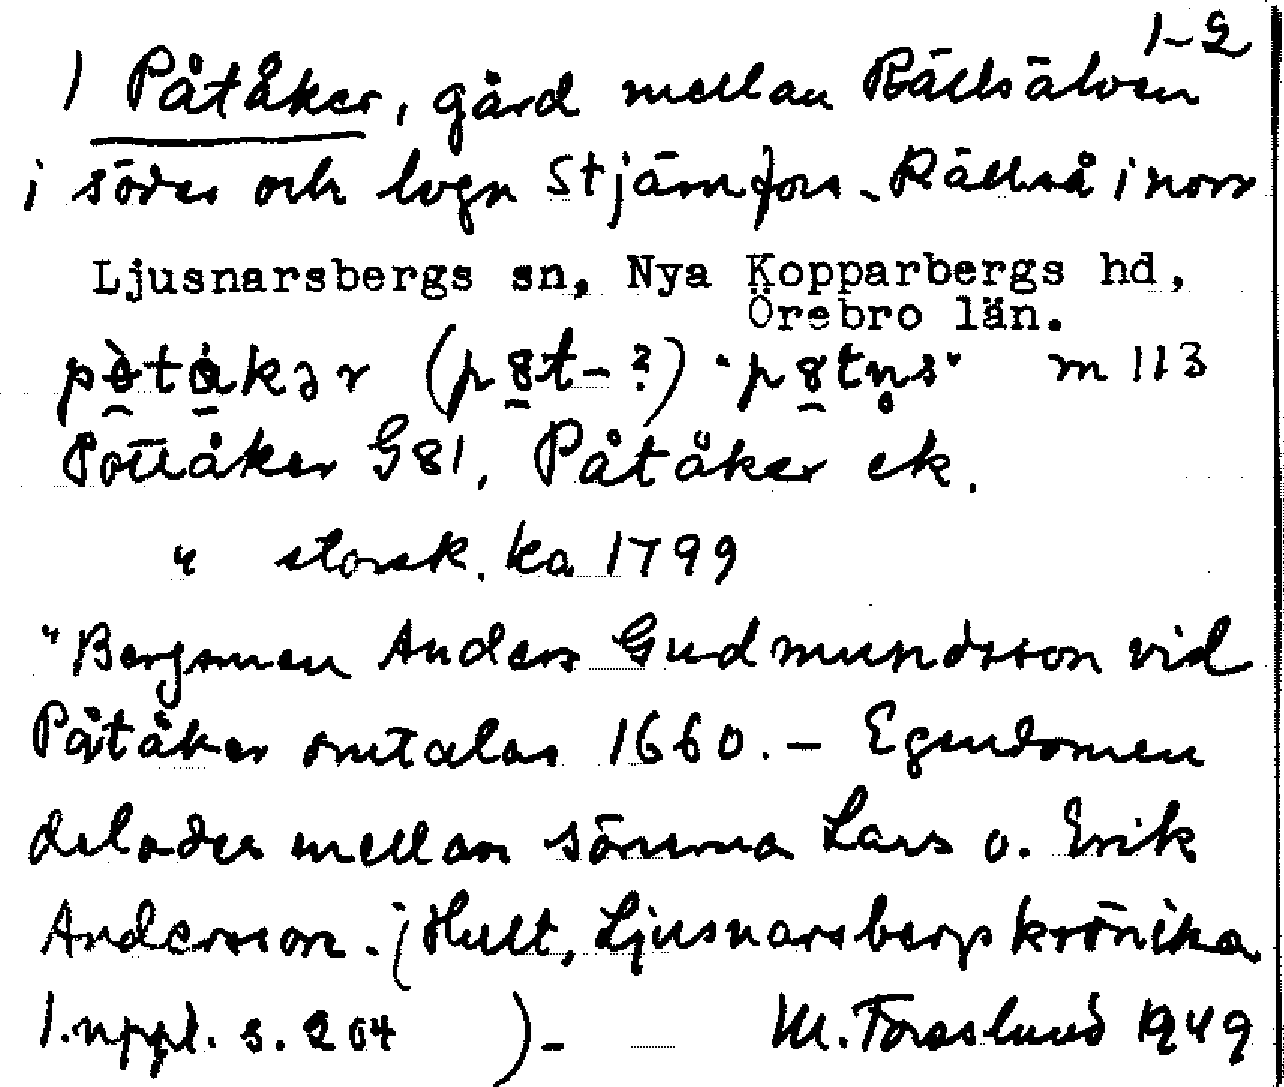 1-2
1 Påtåker, gård mellan Rällsälven
i söder och lvgn Stjärnfors-Rällså i norr
Ljusnarsbergs sn, Nya Kopparbergs hd,
Örebro län.
(p8t-?) "p8tn̥s" m 113
Pottåker G81, Påtåker ek.
" storsk. ka 1799
"Bergsmen Anders Gudmundsson vid
Påtåker omtalas 1660. - Egendomen
delades mellan sönerna Lars o. Erik
Andersson. (Hult, Ljusnarsbergskrönika
1. uppl. s. 204 ) -
M. Forslund 1949